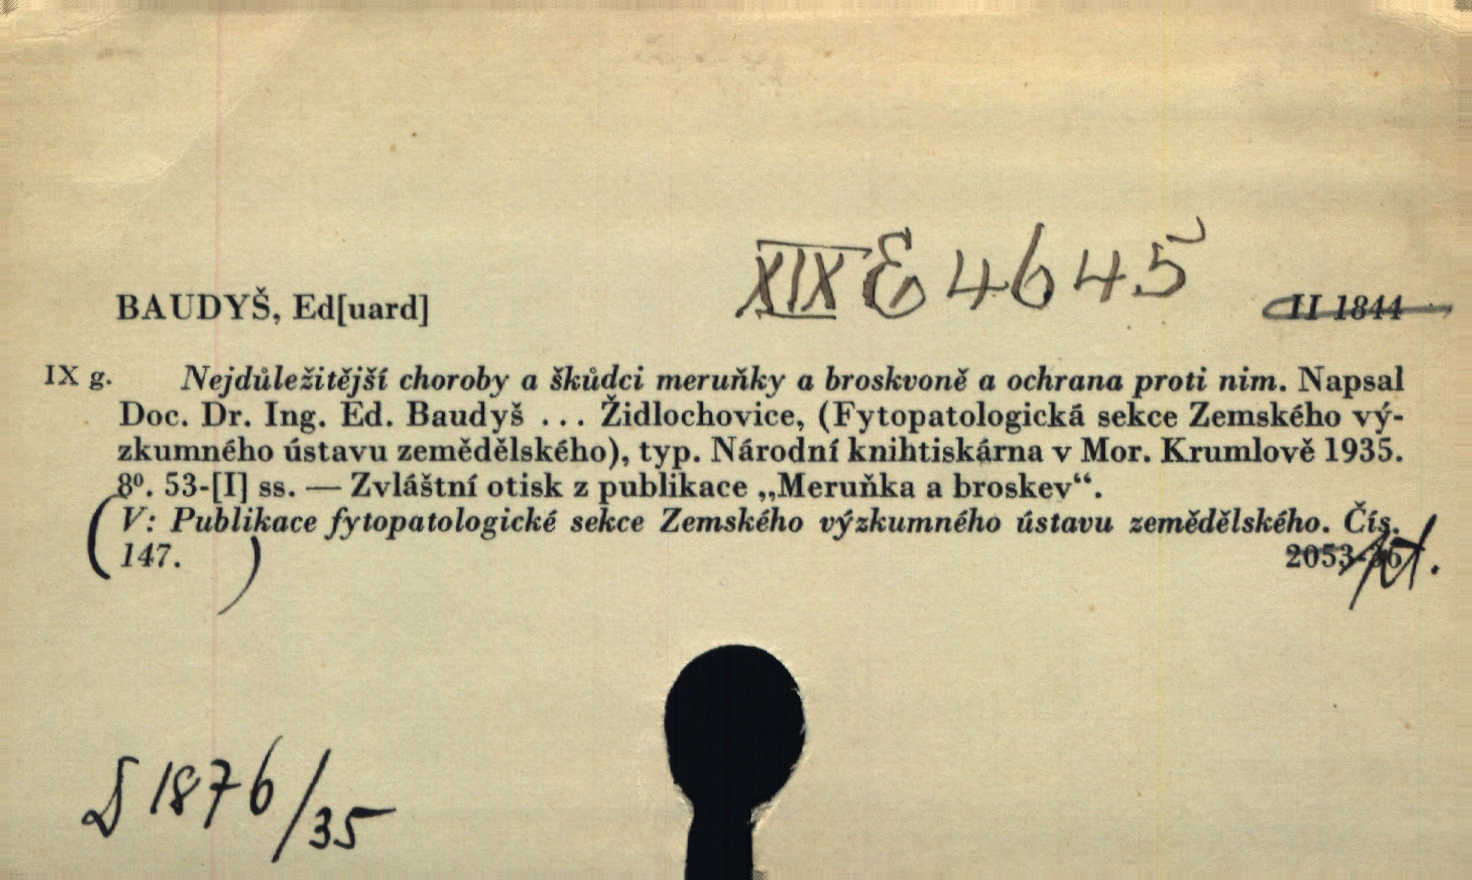 XIX E 4645
BAUDYŠ, Ed[uard]
II 1844
IX g. Nejdůležitější choroby a škůdci meruňky a broskvoně a ochrana proti nim. Napsal
Doc. Dr. Ing. Ed. Baudyš ... Židlochovice, (Fytopatologická sekce Zemského vý-
zkumného ústavu zemědělského), typ. Národní knihtiskárna v Mor. Krumlově 1935.
8⁰. 53-[I] ss. — Zvláštní otisk z publikace „Meruňka a broskev“.
(V: Publikace fytopatologické sekce Zemského výzkumného ústavu zemědělského. Čís.
147. )
2053-36
1876/35